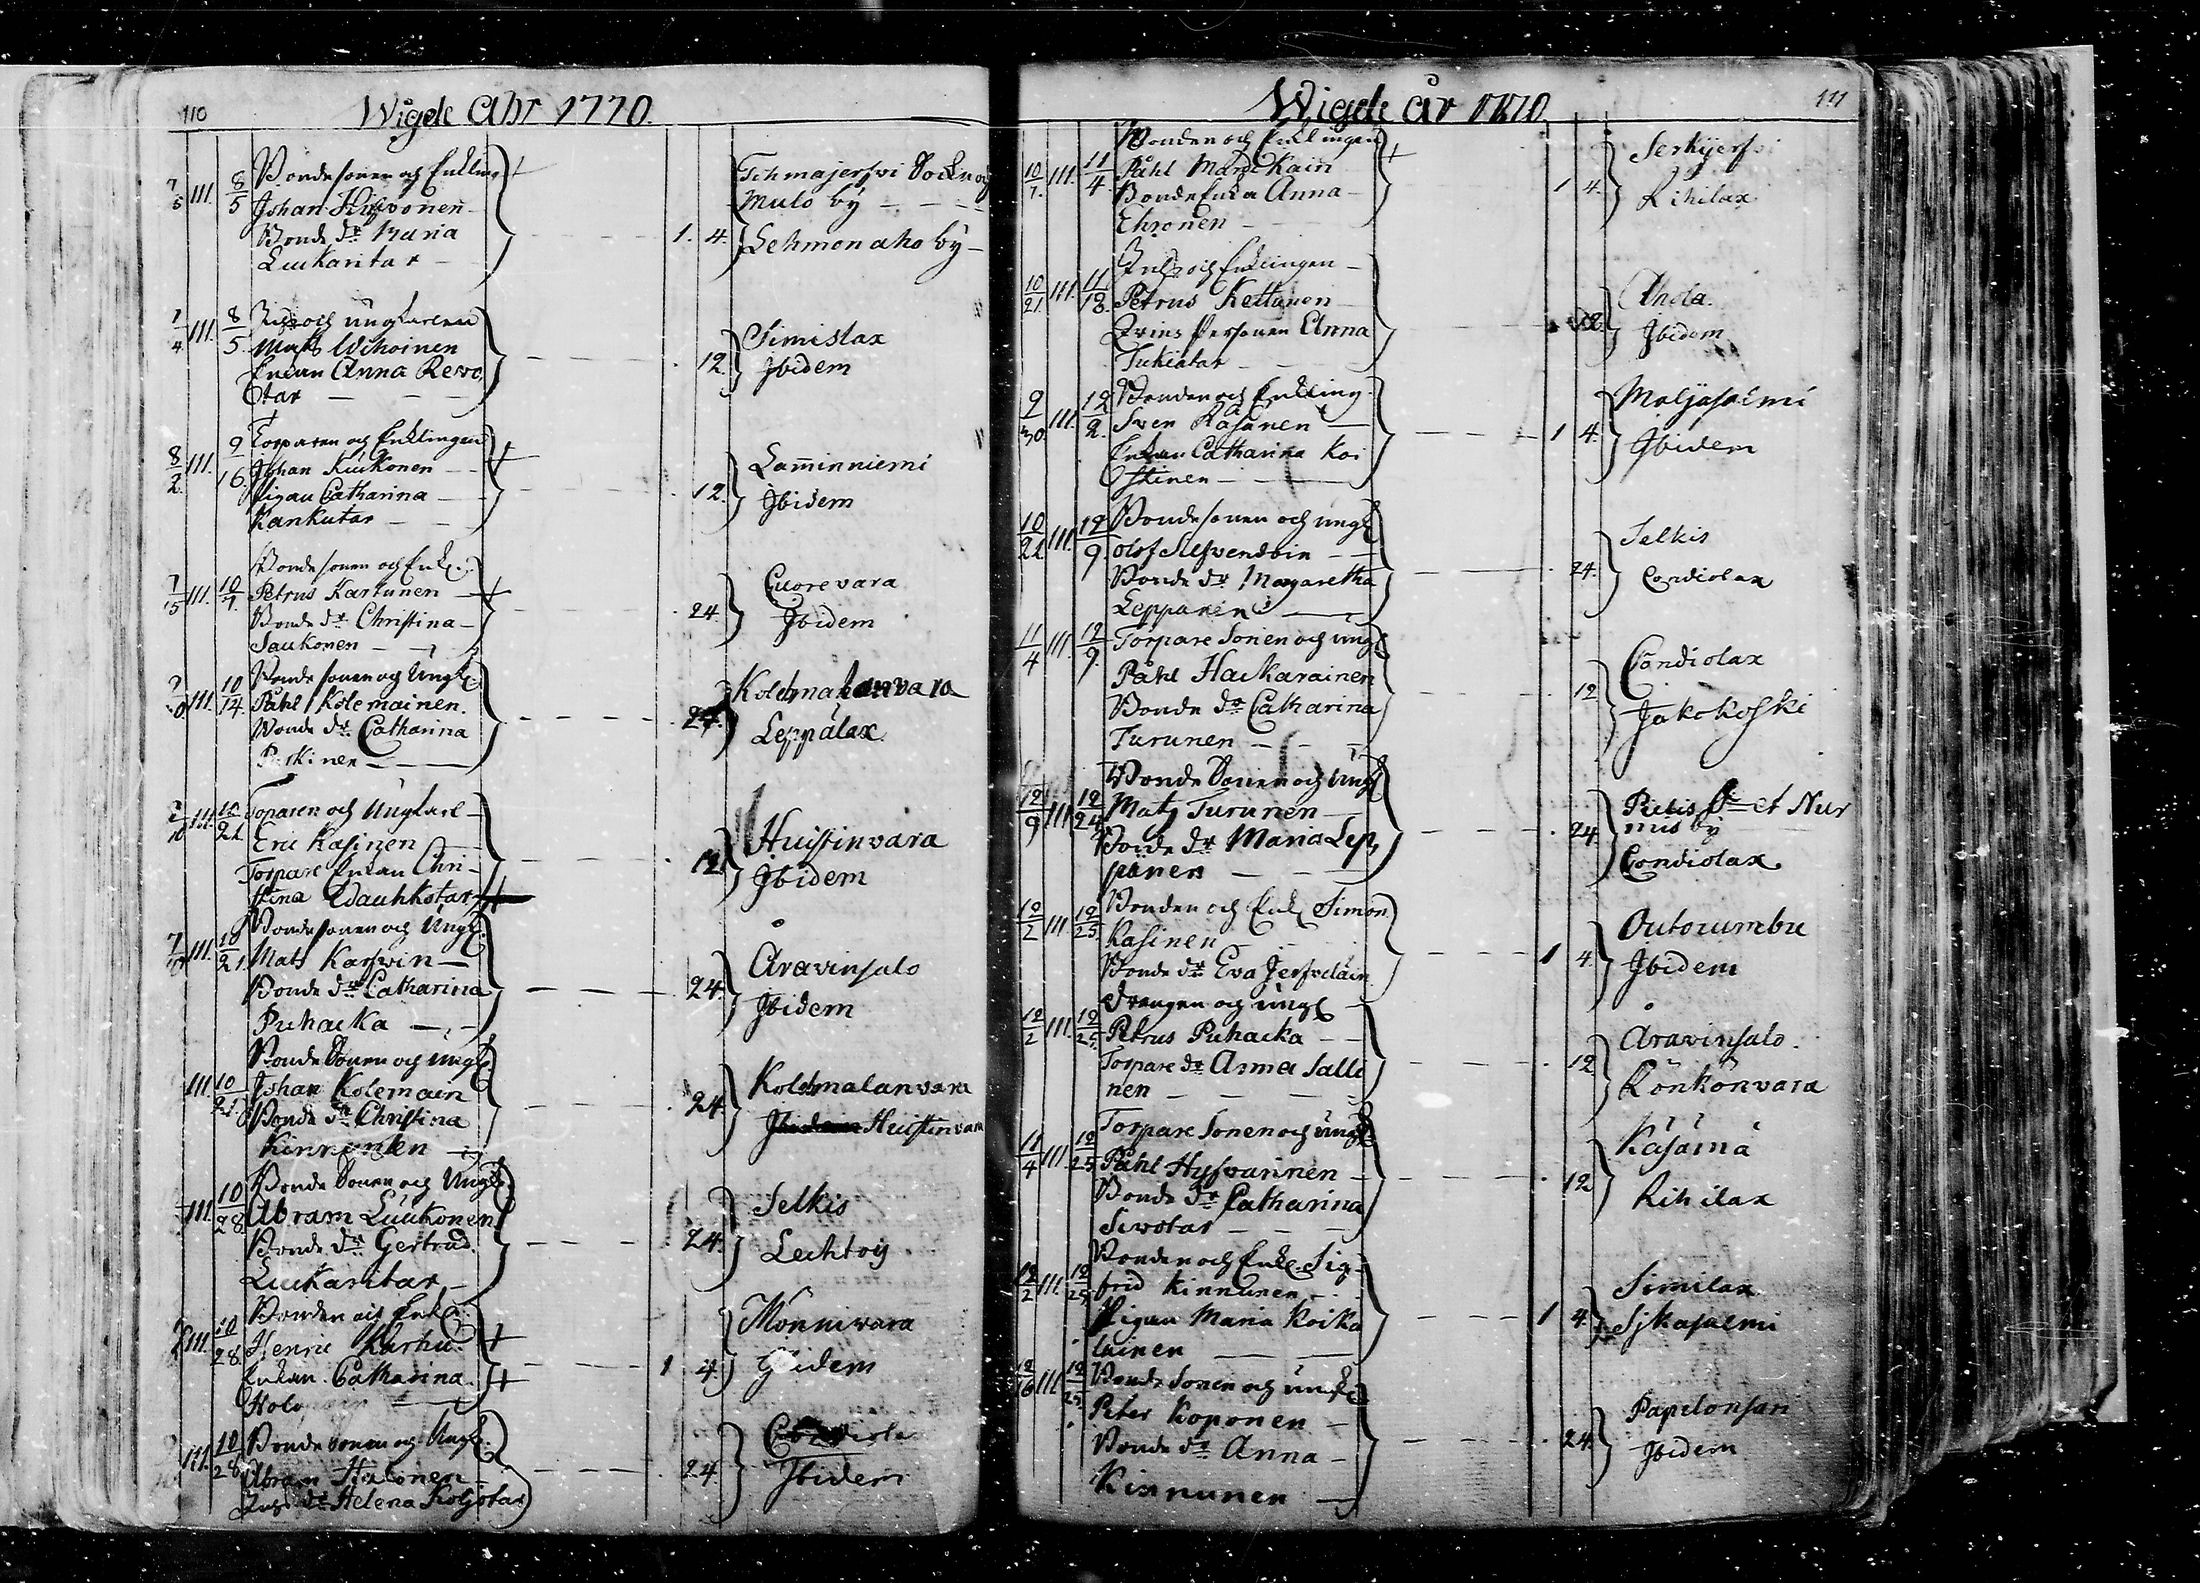 110
Wigde Åhr 1770.
7/5 III. 8/5 Bondesonen och Enkling
Johan Hirvonen
Bonde dr Maria
Luukaritar
1. 4.
Tohmajerfvi Sockn och
Mulo by
Lehmonaho by
7/4 III. 8/5 Inh: och ungkarlen
Matts Wihoinen
Enkan Anna Rewo
tar
12.
Simislax
Ibidem
8/2 III. 9/16 Torparen och Enklingen
Johan Kuukonen
Pigan Catharina
Kankutar
12.
Laminniemi
Ibidem
7/15 III. 10/7 Bondesonen och Enkl.
Petrus Kartunen
Bonde dr Christina
Saukonen
24.
Cuorevara
Ibidem
III. 10/14 Bondesonen och Ungk.
Påhl Kolemainen.
Bonde dr Catharina
Puskinen
24.
Kolehmalanvara
Leppälax
III. 10/21 Toparen och Ungkarl
Eric Kasinen
Torpare Enkan Chri-
stina Wauhkotar
12.
Huistinvara
Ibidem
III. 10/21. Bondesonen och Ungk.
Mats Karfvin
Bonde dr Catharina
Puhacka
24.
Aravinsalo
Ibidem
III. 10/21. Bonde Sonen och ungk.
Johan Kolemain
Bonde dr Christina
Kinnunen
24.
Kolehmalanvara
Huistinvara
III. 10/28 Bonde Sonen och Ungk.
Abram Luukonen
Bonde dr Gertrud.
Luukaritar
24.
Selkis
Lechtoy
III. 10/28. Bonden och Enkl.
Henric Karhu.
Enkan Catharina
1 4.
Mönnivara
Ibidem
III. 10/28 Bonde Sonen och Ungk.
Abram Halonen
Inhs. dr Helena Koljotar
24.
Ibidem
111
Wigde år 1770.
10/7. III. 11/4. Bonden och Enklingen
Påhl Martikain
Bonde Enka Anna
Ehronen
1 4.
Serkijerfvi
Rihilax
10/21. III. 11/18. Inhs och Enklingen
Petrus Kettunen
Qvins Personen Anna
Tukiatar
12.
Ahola.
Ibidem
9/30 III. 12/2. Bonden och Enkling.
Sven Räsänen
Enkan Catharina Koi
stinen
1 4.
Maljasalmi
Ibidem
10/21 III. 12/9. Bondesonen och ungk
Olof Silfvendoin
Bonde dr Margaretha
Leppänen
24.
Selkis
Condiolax
11/4 III. 12/9. Torpare Sonen och ungk
Påhl Hackarainen
Bonde dr Catharina
Turunen
12
Condiolax
Jakokoski
12/9 III. 12/24 Bonde Sonen och Ungk
Mats Turunen
Bonde dr Maria Lep
pänen
24.
Pielis Sn et Nur
mis by
Condiolax.
12/2 III. 12/25. Bonden och Enkl. Simon
Kasinen
Bonde dr Eva Jerfveläin.
1 4.
Outocumbu
Ibidem
12/2 III. 12/25. Drengen och ungk
Petrus Puhacka
Torpare dr Anna Salli
nen
12
Aravinsalo.
Rönkönvara
11/4 III. 12/25 Torpare Sonen och ungk
Påhl Hyfvärinen
Bonde dr Catharina
Sivotar
12
Käsämä
Rihilax
12/2 III. 12/25. Bonden och Enkl. Sig-
frid Kinnunen
Pigan Maria Koika
lainen
1 4.
Similax
Sjkasalmi
12/16 III. 12/25. Bonde Sonen och ungk
Peter Koponen
Bonde dr Anna
Kinnunen
24.
Papelonsari
Ibidem